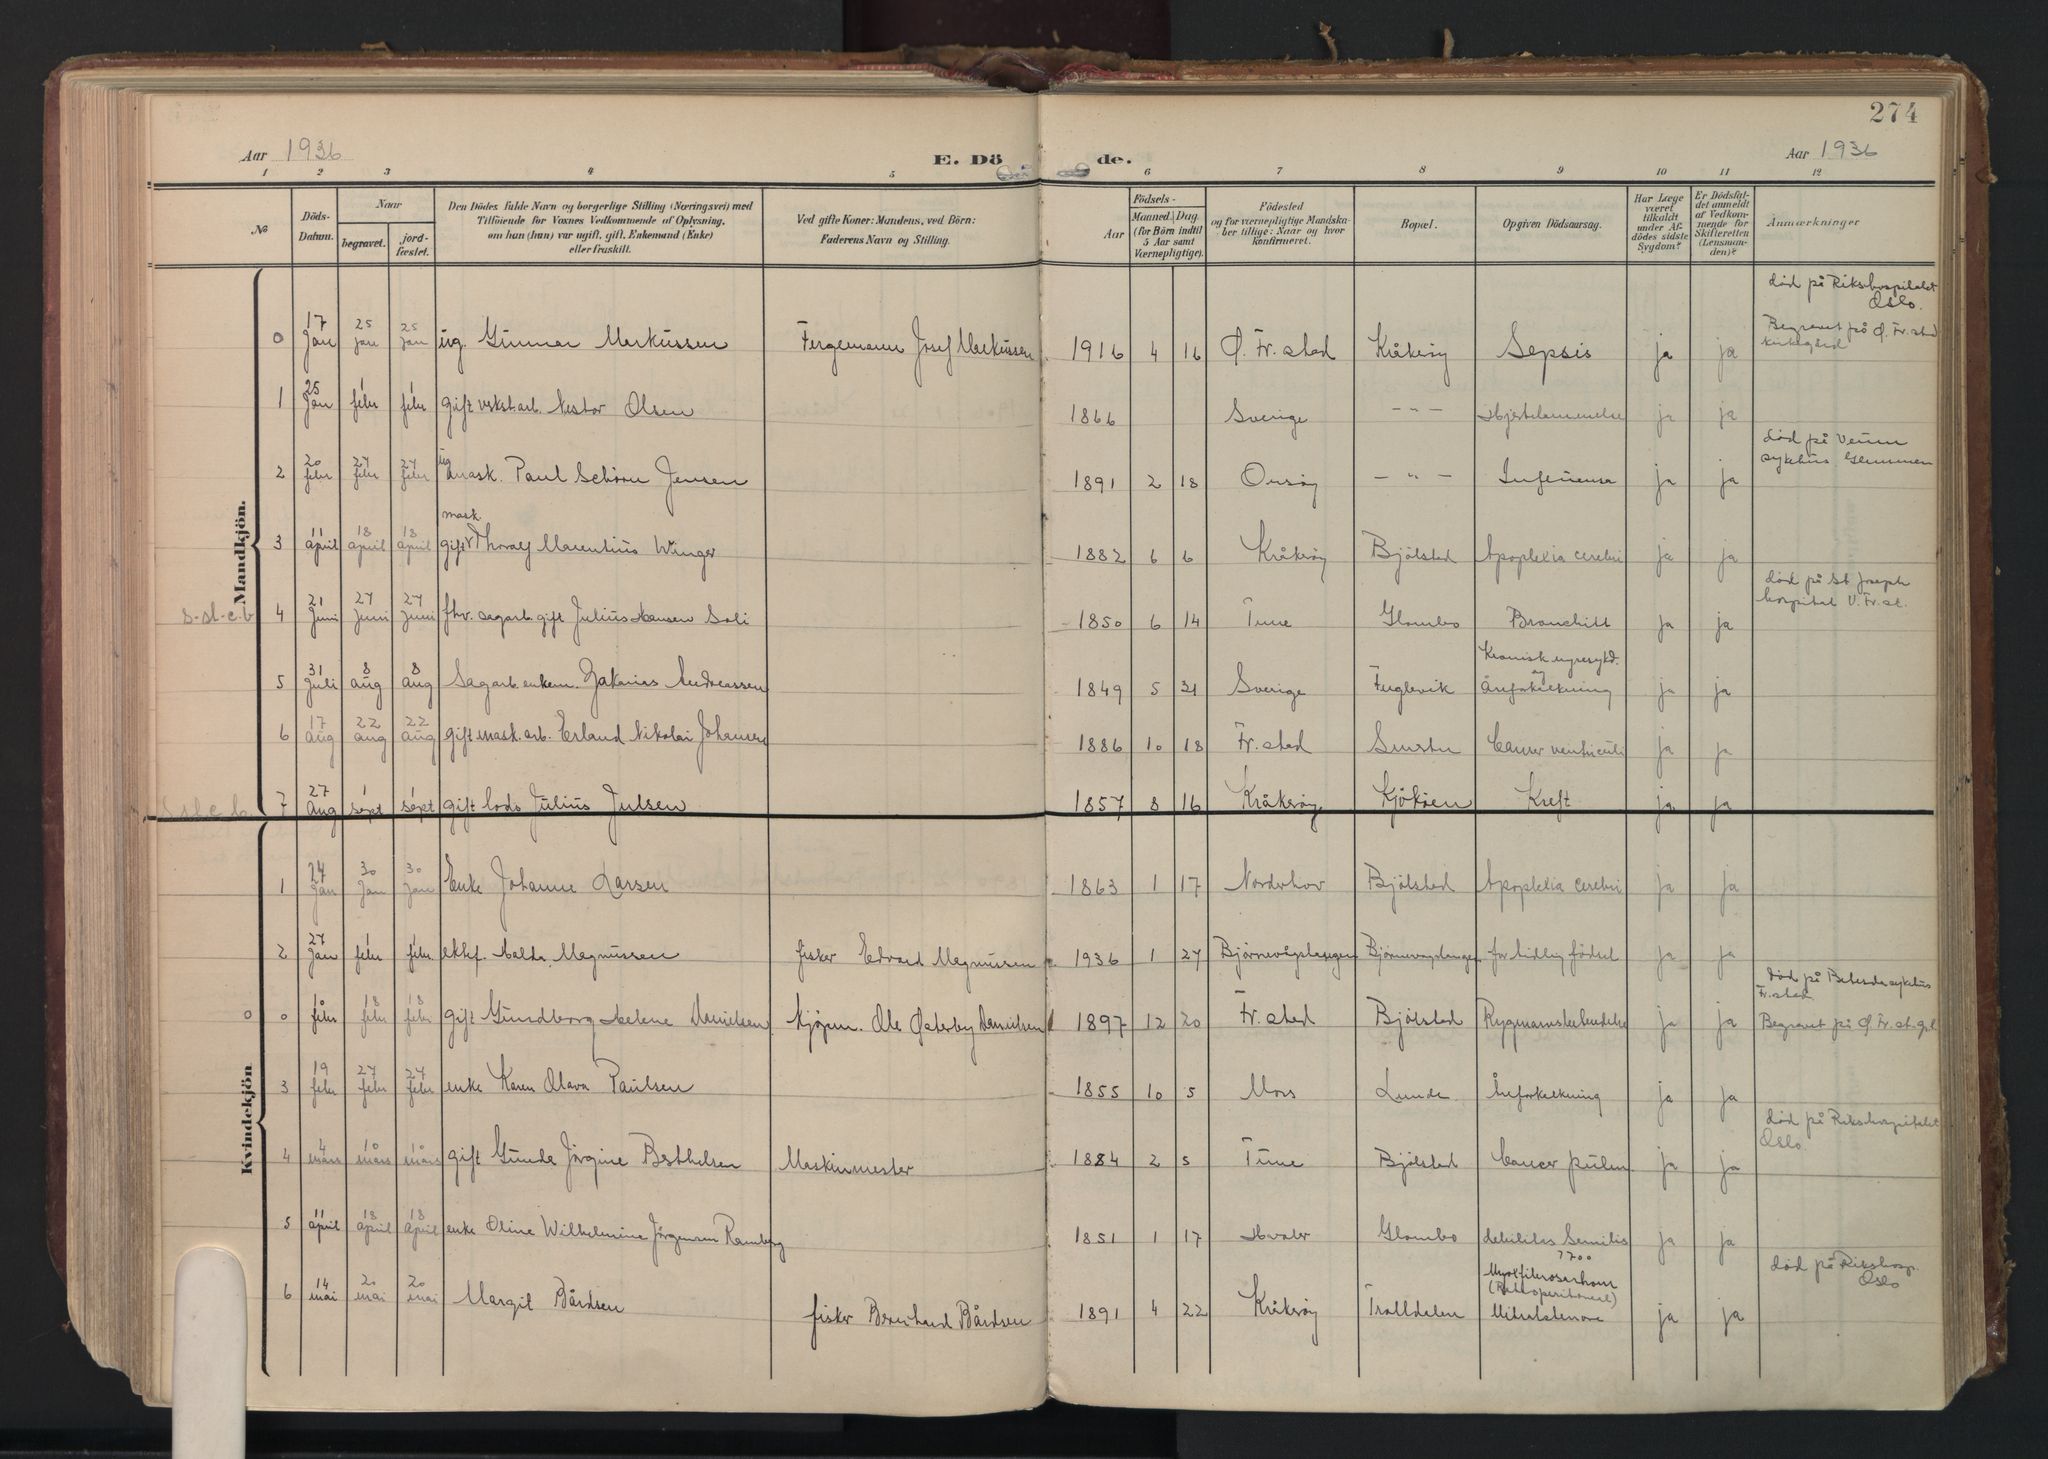 274
Aar 1936
E. Dö
de.
Aar 1936
1 2 3 4 5 6 7 8 9 10 11 12
No
Döds-Datum.
Naar
begravet.
jord-fæstet.
Den Dödes fulde Navn og borgerlige Stilling (Næringsvei) med
Tilföiende for Voxnes Vedkommende af Oplysning,
om han (hun) var ugift, gift, Enkemand (Enke)
eller fraskilt.
Ved gifte Koner: Mandens, ved Börn:
Faderens Navn og Stilling.
Födsels-
Aar
Maaned Dag
(for Börn indtil
5 Aar samt
Værnepligtige).
Födested
og for værnepligtige Mandska-
ber tillige: Naar og hvor
Konfirmeret.
Bopæl.
Opgiven Dödsaarsag.
Har Læge
været
tilkaldt
under Af-
dödes sidste
Sygdom?
Er Dödsfal-
det anmeldt
af Vedkom-
mende for
Skifteretten
(Lensman-
den)?
Anmærkninger
Mandkjön.
død på Rikshospitalet Oslo.
Begravet på Ø. Fr.stad kirkegård
0 17 Jan 25 jan 25 jan ug. Gunnar Markussen Fergemann Josef Markussen 1916 4 16 Ø. Fr.stad Kråkerøy Sepsis ja ja
1 25 Jan 1 febr 1 febr gift verkst.arb. Nestor Olsen 1866 Sverige -"- Hjertelammelse ja ja
død på Veum sykehus Glemmen
2 20 febr 27 febr 27 febr ug mask. Paul Schöru Jensen 1891 2 18 Onsøy -"- Influensa ja ja
3 11 april 18 april 18 april gift mask Thoralf Marentius Winger 1882 6 6 Kråkerøy Bjølstad Apoplexia cerebri ja ja
død på St Joseph hospital V. Fr.st.
s-st-c.b 4 21 Juni 27 Juni 27 Juni fhv. sagarb. gift Julius Hansen Soli 1850 6 14 Tune Glombo Bronchitt ja ja
5 31 Juli 8 aug 8 aug Sagarb. enkem. Zakarias Andreassen 1849 5 31 Sverige Fuglevik Kronisk nyresykd. og Åreforkalkning ja ja
6 17 aug 22 aug 22 aug gift mask.arb. Erland Nikolai Johansen 1886 10 18 Fr.stad Smertu Cancer ventriculi ja ja
s.st.c.b. 7 27 Aug 1 sept 1 sept gift lods Julius Julsen 1857 8 16 Kråkerøy Kjøkøen Kreft ja ja
Kvindekjön
1 24 Jan 30 Jan 30 Jan Enke Johanne Larsen 1863 1 17 Norderhov Bjølstad Apoplexia cerebri ja ja
2 27 Jan 1 febr 1 febr ektef. Magnussen fisker Edvard Magnussen 1936 1 27 Bjørnevågstangen Bjørnevågstangen for tidlig fødsel ja ja
død på Betesda sykehus Fr.stad
Begravet på Ø. Fr.st. g.l.
0 0 1 febr 18 febr 18 febr gift Gundborg Helene Danielsen kjøpm. Ole Østerby Danielsen 1897 12 20 Fr.stad Bjølstad Rygmarvsbetendelse ja ja
3 19 febr 27 febr 27 febr enke Karen Olava Paulsen 1855 10 5 Moss Lunde Åreforkalkning ja ja
død på Rikshospitalet Oslo
4 4 mars 10 mars 10 mars gift Gunda Jørgine Berthelsen Maskinmester 1884 2 5 Tune Bjølstad Cancer pulm ja ja
5 11 april 18 april 18 april enke Oline Wilhelmine Jørgensen Ramberg 1851 1 17 Hvaler Glombo debilitas Senilis ja ja
død på Rikshosp. Oslo
6 14 mai 20 mai 20 mai Margit Bårdsen fisker Bernhard Bårdsen 1891 4 22 Kråkerøy Trolldalen (Retroperitoneal) Mitralstenose ja ja